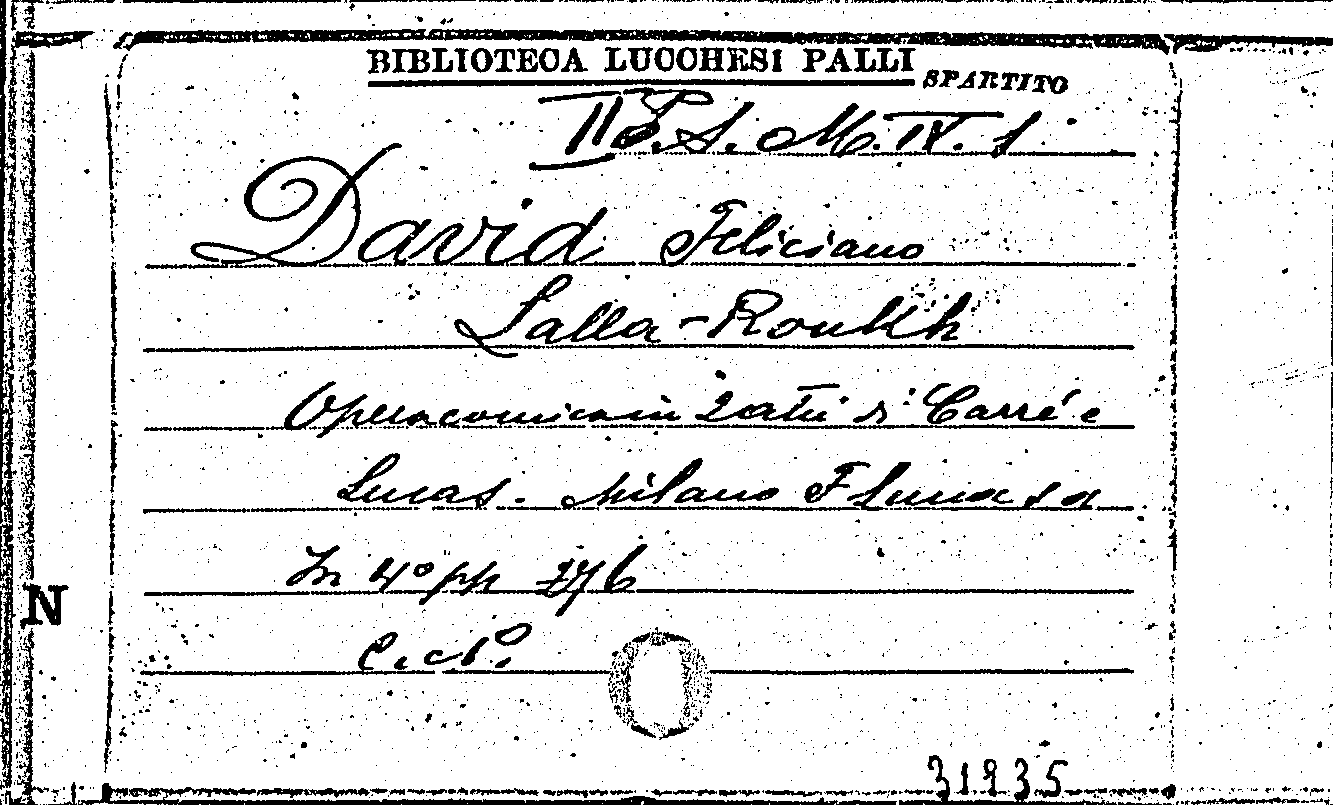 BIBLIOTECA LUCCHESI PALLI
SPARTITO
II S. S. M. IV. 1
David Feliciano
Lalla-Roukh
Opera comica in 2 atti di Carré e
Lucas. Milano F Lucca s a
In 4° pp 276
C. e P.
N
31935